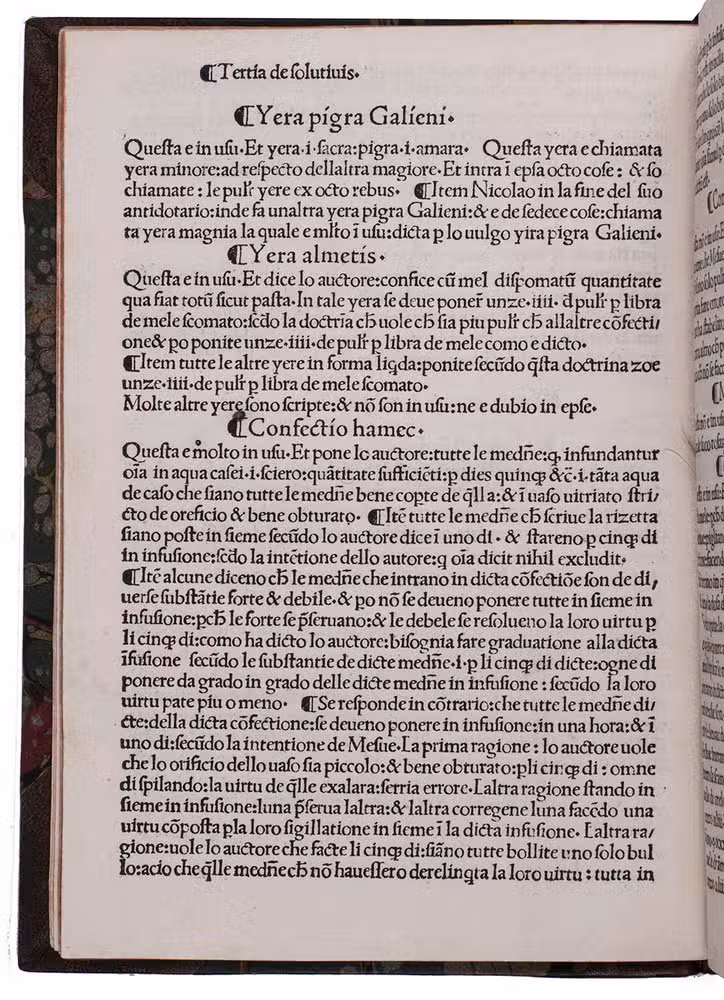 ⁋Tertia de ſolutiuis.
⁋Yera pigra Galieni.
Queſta e in uſu.Et yera.i.ſacra:pigra.i.amara. Queſta yera e chiamata
yera minore:ad reſpecto dellaltra magiore.Et intra ĩ epſa octo coſe: & ſo
chiamate: le pulꝛ yere ex octo rebus. ⁋Item Nicolao in la fine del ſuo
antidotario:inde fa unaltra yera pigra Galieni:& e de ſedece coſe:chiama
ta yera magnia la quale e mlto ĩ uſu:dicta p̱ lo uulgo yira pigra Galieni.
⁋Yera almetis.
Queſta e in uſu.Et dice lo auctore:confice cũ mel diſpomatũ quantitate
qua fiat totũ ſicut paſta.In tale yera ſe deue poner̃ unze.iiii. đ pulꝛ p̱ libra
de mele ſcomato:ſcđo la doctrĩa cħ uole cħ ſia piu pulꝛ cħ allaltre cõfecti/
one& po ponite unze.iiii.de pulꝛ p̱ libra de mele como e dicto.
⁋Item tutte le altre yere in forma liqda:ponite ſecũdo q̃ſta doctrina zoe
unze.iiii.de pulꝛ p̱ libra de mele ſcomato.
Molte altre yere ſono ſcripte:& nõ ſon in uſu:ne e dubio in epſe.
⁋Confectio hamec.
Queſta e molto in uſu.Et pone lo auctore:tutte le medñe:q, infundantur
oĩa in aqua caſei.i.ſciero:quãtitate ſufficiẽti:p̱ dies quinqȝ &c̃.i.tãta aqua
de caſo che ſiano tutte le medñe bene copte de q̃ll a:& ĩ uaſo uitriato ſtri/
cto de oreficio & bene obturato. ⁋Itẽ tutte le medñe cħ ſcriue la rizetta
ſiano poſte in ſieme ſecũdo lo auctore dice ĩ uno di. & ſtareno p̱ cinqȝ di
in infuſione:ſcđo la intẽtione dello autore:q oĩa dicit nihil excludit.
⁋Itẽ alcune diceno cħ le medñe che intrano in dicta cõfectiõe ſon de di,
uerſe ſubſtãtie forte & debile.& po nõ ſe deueno ponere tutte in ſieme in
infuſione:p̱cħ le forte ſe p̃ſeruano:& le debele ſe reſolueno la loro uirtu p̱
li cinqȝ di:como ha dicto lo auctore:biſognia fare graduatione alla dicta
ĩfuſione ſecũdo le ſubſtantie de dicte medñe.i.p̱ li cinqȝ di dicte:ogne di
ponere da grado in grado delle dicte medñe in infuſione: ſecũdo la loro
uirtu pate piu o meno. ⁋Se reſponde in cõtrario:che tutte le medñe di/
cte:della dicta cõfectione:ſe deueno ponere in infuſione:in una hora:& ĩ
uno di:ſecũdo la intentione de Meſue.La prima ragione: lo auctore uole
che lo orificio dello uaſo ſia piccolo:& bene obturato:p̱li cinqȝ di: omne
di ſpilando:la uirtu de q̃lle exalara:ſerria errore.Laltra ragione ſtando in
ſieme in infuſione:luna p̃ſerua laltra:& laltra corregene luna facẽdo una
uirtu cõpoſta p̱la loro ſigillatione in ſieme ĩ la dicta infuſione. Laltra ra/
gione:uole lo auctore che facte li cinqȝ di:ſiãno tutte bollite uno ſolo bul
lo:acio che q̃lle medñe cħ nõ haueſſero derelinqta la loro uirtu: tutta in